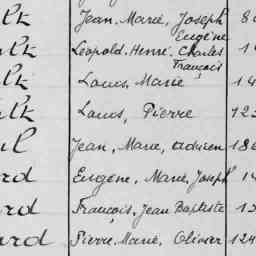 lk Jean, Marie, Joseph 8
Eugène
lk Léopold, Henri, Charles 1
François
lk Louis, Marie 14
lk Louis, Pierre 123
l Jean, Marie, Adrien 186
rd Eugène, Marie, Joseph 14
rd François, Jean Baptiste 13
ard Pierre, Marie, Olivier 124